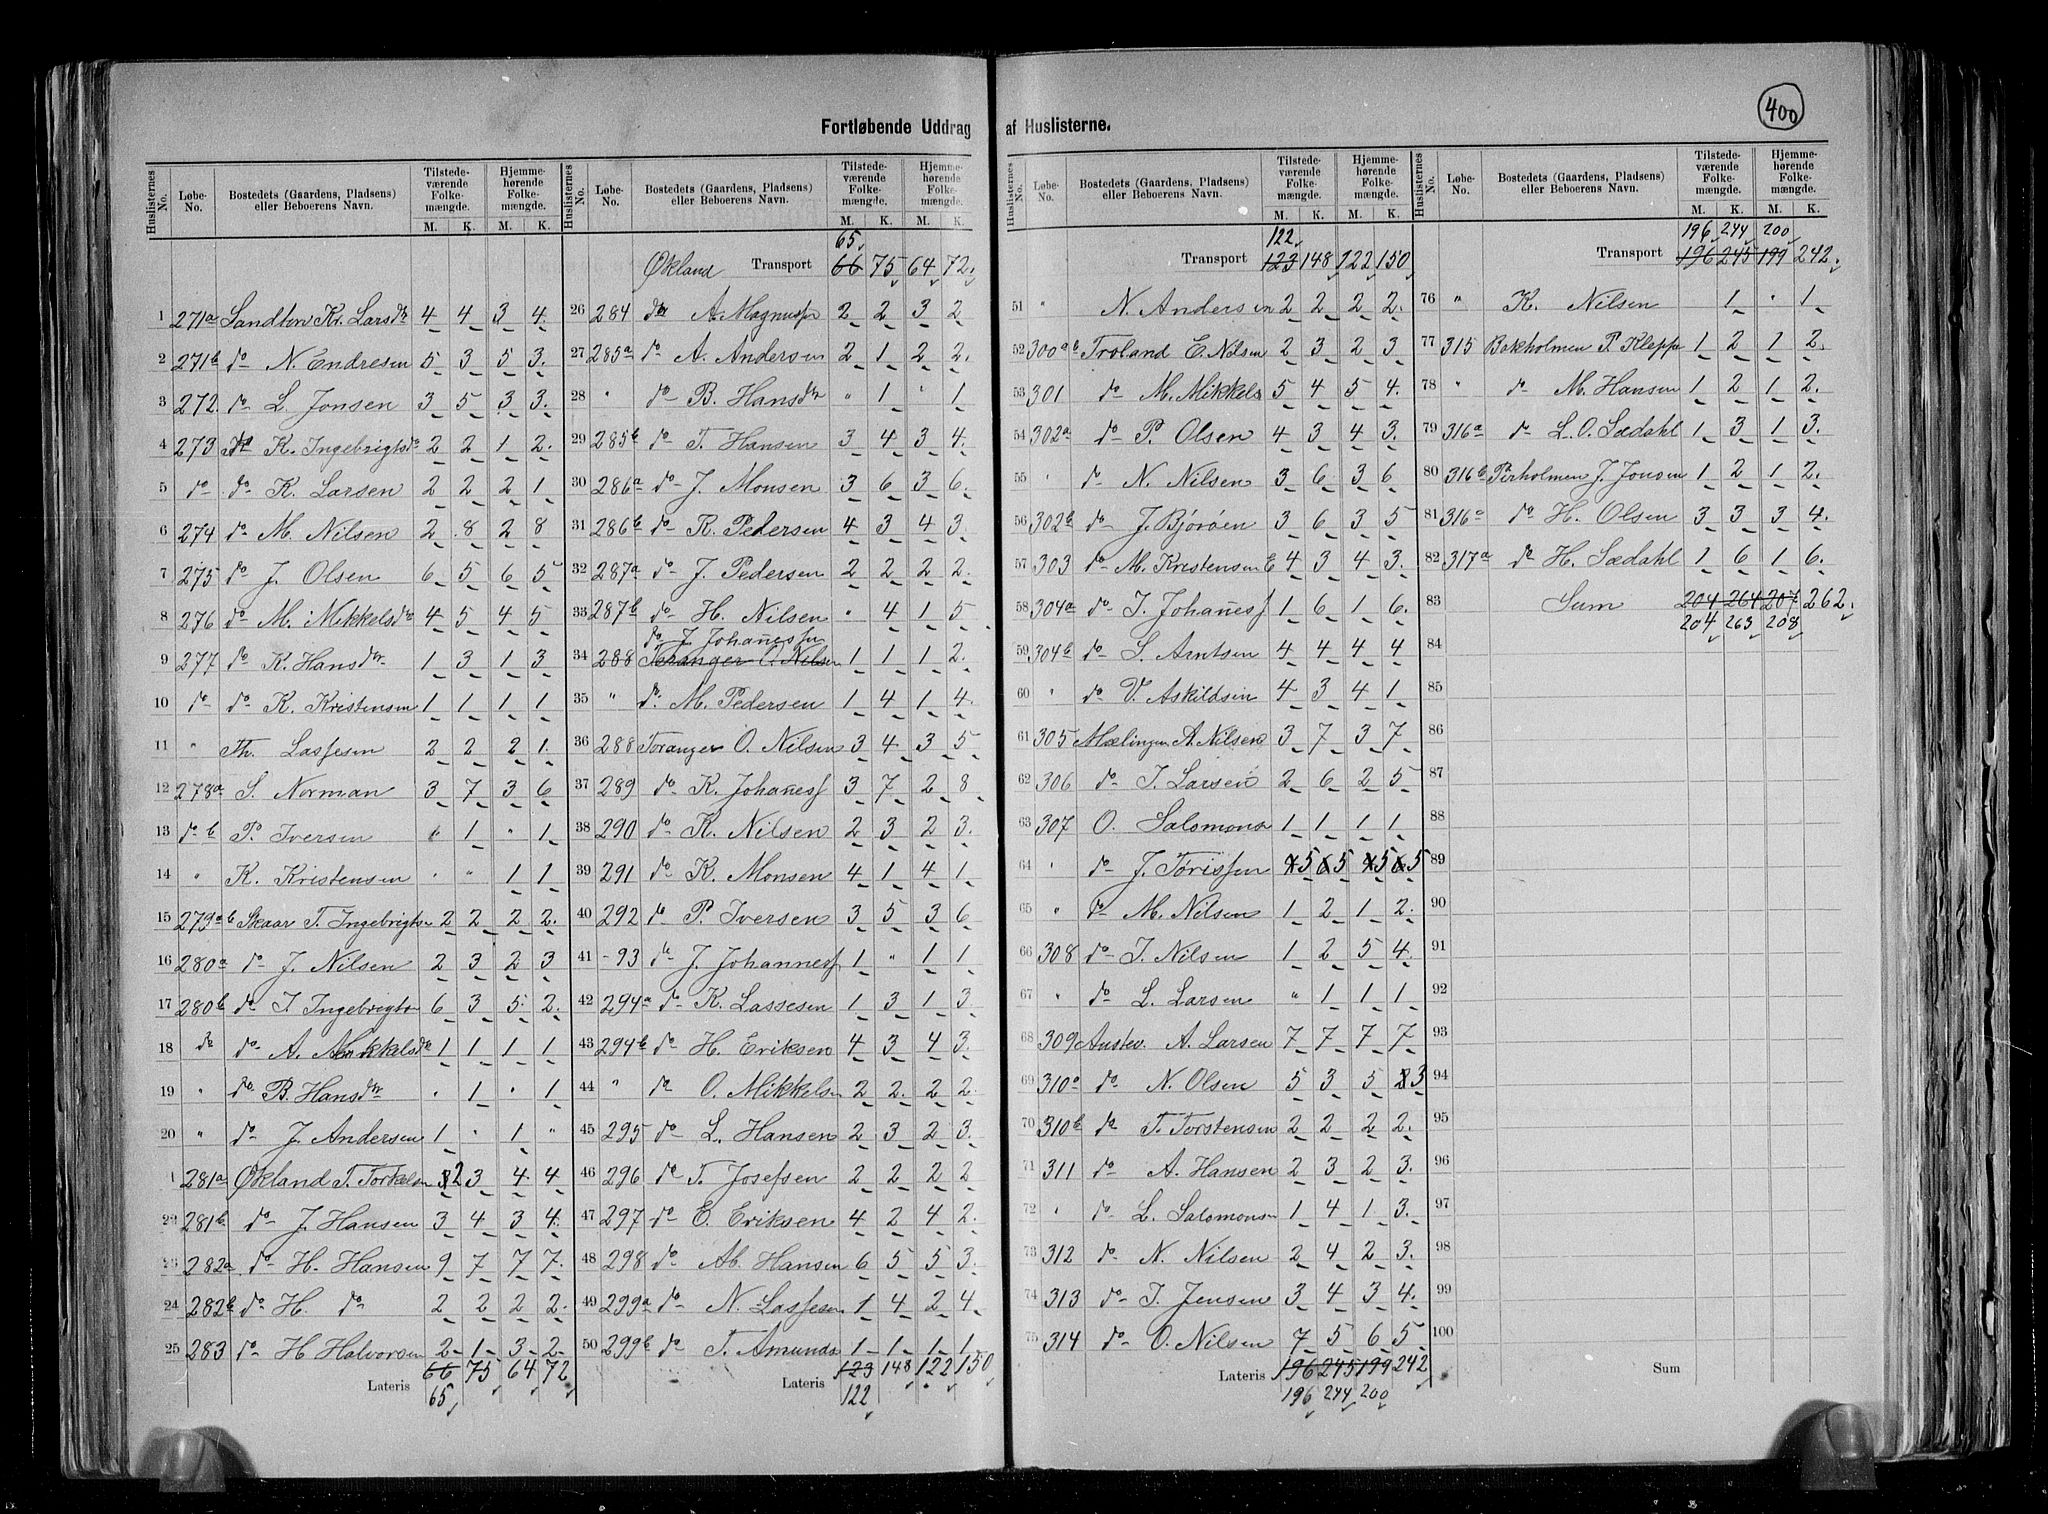 400
Fortløbende Uddrag af Huslisterne.
Huslisternes No. Løbe-No. Bostedets (Gaardens, Pladsens) eller Beboerens Navn. Tilstedeværende Folkemængde. M. K. Hjemmehørende Folkemængde. M. K.
1 271a Sandtorv Kr. Larsdtr 4 4 3 4.
2 271b do N. Endresen 5 3 5 3.
3 272. do L. Jonsen 3 5 3 3.
4 273 do K. Ingebrigtsdr 2 2 1 2.
5 do do K. Larsen 2 2 2 1
6 274 do M. Nilsen 2 8 2 8
7 275 do J. Olsen 6 5 6 5
8 276 do M. Mikkelsdr 4 5 4 5
9 277 do K. Hansdtr 1 3 1 3
10 do do K. Kristensen 1 1 1 1
11 " Th. Lassesen 2 2 2 1.
12 278a S. Norman 3 7 3 6
13 do b P. Iversen " 1 " 1
14 " K. Kristensen " " 1 1
15 279ab Skaar T. Ingebrigtsn 2 2 2 2.
16 280a do J. Nilsen 2 3 2 3
17 280b do T. Ingebrigtsn 6 3 5 2.
18 do do A. Mikkelsdr 1 1 1 1
19 " do B. Hansdtr " 1 " 1
20 " do J. Andersen 1 " 1 "
1 281a Økland T. Torkelsn 2 3 4 4
22 281b do J. Hansen 3 4 3 4.
23 282a do H. Hansen 9 7 7 7.
24 282b do H. do 2 2 2 2.
25 283 do H Halvorsen 2 1 3 2
Lateris 66 75 64 72
65
Huslisternes No. Løbe-No. Bostedets (Gaardens, Pladsens) eller Beboerens Navn. Tilstedeværende Folkemængde. M. K. Hjemmehørende Folkemængde. M. K.
65
Økland Transport 66 75 64 72.
26 284 do A. Magnussn 2 2 3 2
27 285a do A. Andersen 2 1 2 2.
28 " do B. Hansdtr " 1 " 1
29 285b do T. Hansen 3 4 3 4.
30 286a do J. Monsen 3 6 3 6.
31 286b do R. Pedersen 4 3 4 3
32 287a do J. Pedersen 2 2 2 2.
33 287b do H. Nilsen " 4 1 5
do J. Johannessn
34 288 Teranger O. Nilsen 1 1 1 2.
35 " do M. Pedersen 1 4 1 4.
36 288 Toranger O. Nilsen 3 4 3 5
37 289 do K. Johaness 3 7 2 8
38 290 do K. Nilsen 2 3 2 3.
39 291 do K. Monsen 4 1 4 1
40 292 do P. Iversen 3 5 3 6
41 -93 do J. Johanness 1 " 1 1
42 294a do K. Lassesen 1 3 1 3
43 294b do H. Eriksen 4 3 4 3
44 " do O. Mikkelsn 2 2. 2 2
45 295 do L. Hansen 2 3 2 3.
46 296 do T. Josefsen 2 2 2 2
47 297 do E. Eriksen 4 2 4 2.
48 298 do M. Hansen 6 5 5 3.
49 299a do N. Lassesen 1 4 2 4
50 299b do T. Amunds 1 1 1 1
Lateris 123 148 122 150
122
Huslisternes No. Løbe-No. Bostedets (Gaardens, Pladsens) eller Beboerens Navn. Tilstedeværende Folkemængde. M. K. Hjemmehørende Folkemængde. M. K.
122
Transport 123 148 122 150
51 " N. Andersen 2 2 2 2.
52 300ab Troland E. Nilsen 2 3 2 3
53 301 do M. Mikkels 5 4 5 4.
54 302a do P. Olsen 4 3 4 3.
55 " do N. Nilsen 3 6 3 6
56 302b do J. Björöen 3 6 3 5
57 303 do M. Kristensen E 4 3 4 3.
58 304a do J. Johaness 1 6 1 6.
59 304b do S. Arntsen 4 4 4 4
60 " do V. Askildsen 4 3 4 1
61 305 Mælingen A. Nilsen 3 7 3 7
62 306 do J. Larsen 2 6 2 5
63 307 O. Salomons 1 1 1 1
64 " do J. Törissen 5 5 5 5
65 " do M. Nilsen 1 2 1 2.
66 308 do J. Nilsen 1 2 5 4.
67 " do L. Larsen " 1 1 1
68 309 Austev. A. Larsen 7 7 7 7
69 310a do N. Olsen 5 3 5 3
70 310b do T. Torstensen 2 2 2 2.
71 311 do A. Hansen 2 3 2 3.
72 " do L. Salomonsn 1 4 1 3.
73 312 do N. Nilsen 2 4 2 3.
74 313 do J. Jensen 3 4 3 4.
75 314 do O. Nilsen 7 5 6 5
Lateris 196 245 199 242
196 244 200
Huslisternes No. Løbe-No. Bostedets (Gaardens, Pladsens) eller Beboerens Navn. Tilstedeværende Folkemængde. M. K. Hjemmehørende Folkemængde. M. K.
196 244 200
Transport 196 245 199 242.
76 " K. Nilsen 1 " 1
77 315 Bakholmen P. Kleppe 1 2 1 2.
78 " do M. Hansen 1 2 1 2.
79 316a do L. O. Sædahl 1 3 1 3.
80 316b Perholmen J. Jonsen 1 2 1 2.
81 316a do H. Olsen 3 3 3 4.
82 317a do H. Sædahl 1 6 1 6.
83 Sum 204 264 207 262.
204 263 208
84
85
86
87
88
89
90
91
92
93
94
95
96
97
98
99
100
Sum